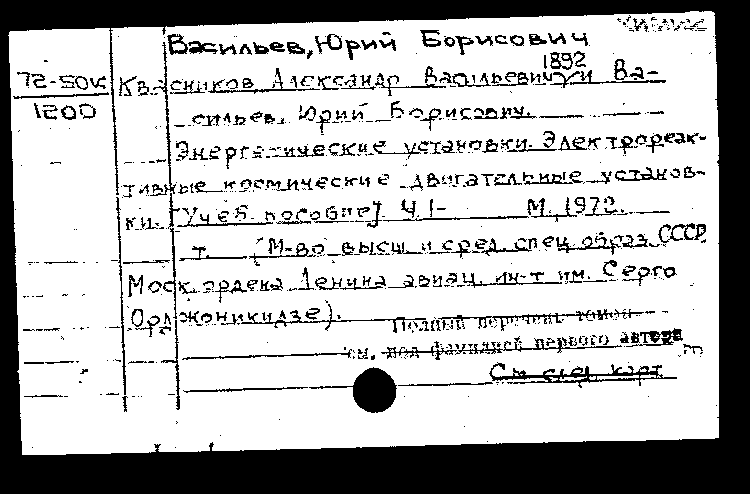 Васильев, Юрий Борисович
1892
72-50к Квасников, Александр Васильевич и Ва-
1200 сильев, Юрий Борисович.
Энергетические установки. Электрореак-
тивные космические двигательные установ-
ки. [Учеб. пособие] Ч 1- М., 1972.
т. (М-во высш. и сред. спец. образ. СССР.
Моск. ордена Ленина авиац. ин-т им. Серго
Орджоникидзе).
Полный перечень томов
см. под фамилией первого автора
См. след. карт.